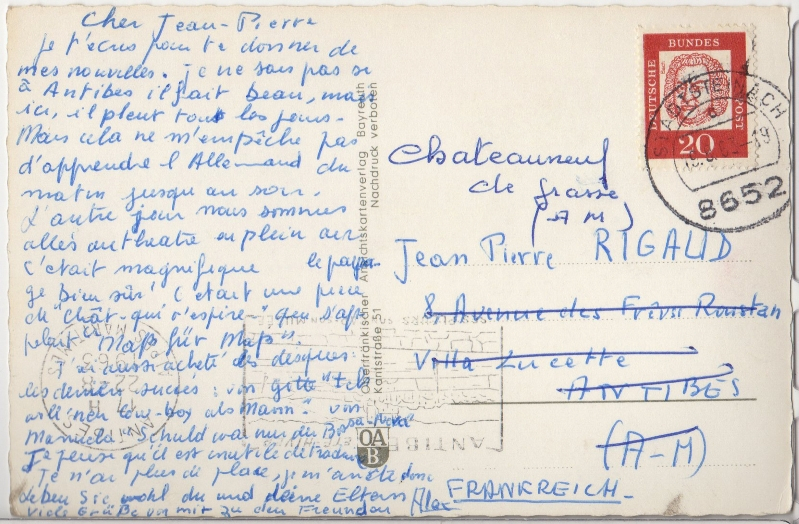 Cher Jean-Pierre
je t'écris pour te donner de
mes nouvelles. je ne sais pas si
à Antibes il fait beau, mais
ici, il pleut tous les jours.
Mais cela ne m'empêche pas
d'apprendre l'Allemand du
matin jusqu'au soir.
L'autre jour nous sommes
allés au theatre en plein air
c'était magnifique le paysa-
ge bien sûr! C'était une piece
de "Chat-qui s'espire" qui s'ap-
pelait "Maß für Maß".
J'ai aussi acheté des disques:
les derniers succes: von Gitte "Ich
will 'nen Cow-boy als Mann" von
Manuela Schuld war nur der Bossa-Nova
Je pense qu'il est inutile de traduire
Je n'ai plus de place, je m'arrête donc
Leben Sie wohl du und deine Eltern
Viele Grüße von mir zu den Freunden Alex
Oberfränkischer Ansichtskartenverlag Bayreuth
Kantstraße 51 Nachdruck verboten
OA
B
DEUTSCHE
BUNDES
POST
20
8652
Chateauneuf
de Grasse
(AM)
Jean Pierre RIGAUD
8 Avenue des Frères Roustan
Villa Lucette
ANTIBES
(A-M)
FRANKREICH.
ANTIBES